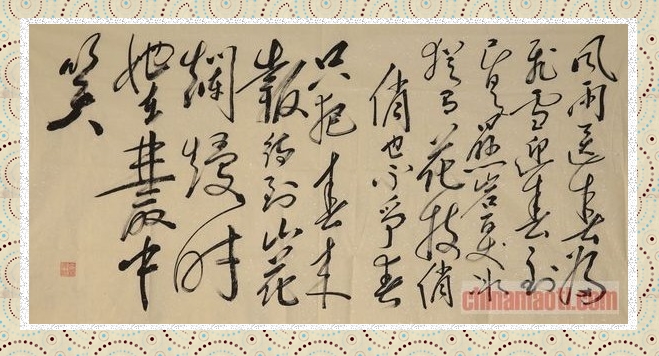 風雨送春归
飛雪迎春到
已是懸岩百丈冰
猶有花枝俏
俏也不争春
只把春来
報待到山花
爛漫时
她在叢中
笑
chinamaoti.com